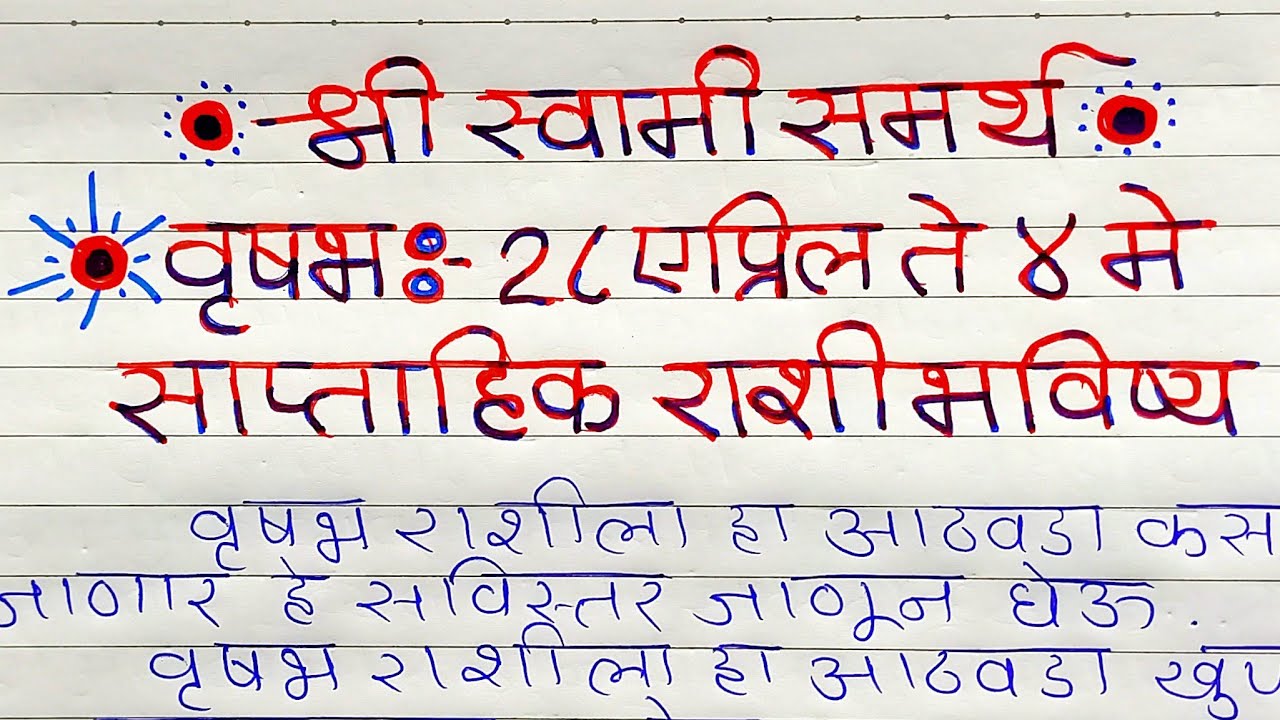 श्री स्वामी समर्थ
वृषभ :- 2८ एप्रिल ते ४ मे
साप्ताहिक राशीभविष्य
वृषभ राशीला हा आठवडा कस
जाणार हे सविस्तर जाणून घेऊ.
वृषभ राशीला हा आठवडा खुप